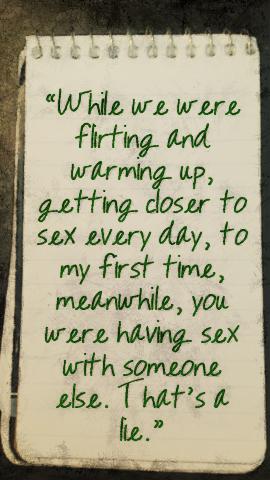 “While we were
flirting and
warming up,
getting closer to
sex every day, to
my first time,
meanwhile, you
were having sex
with someone
else. That’s a
lie.”